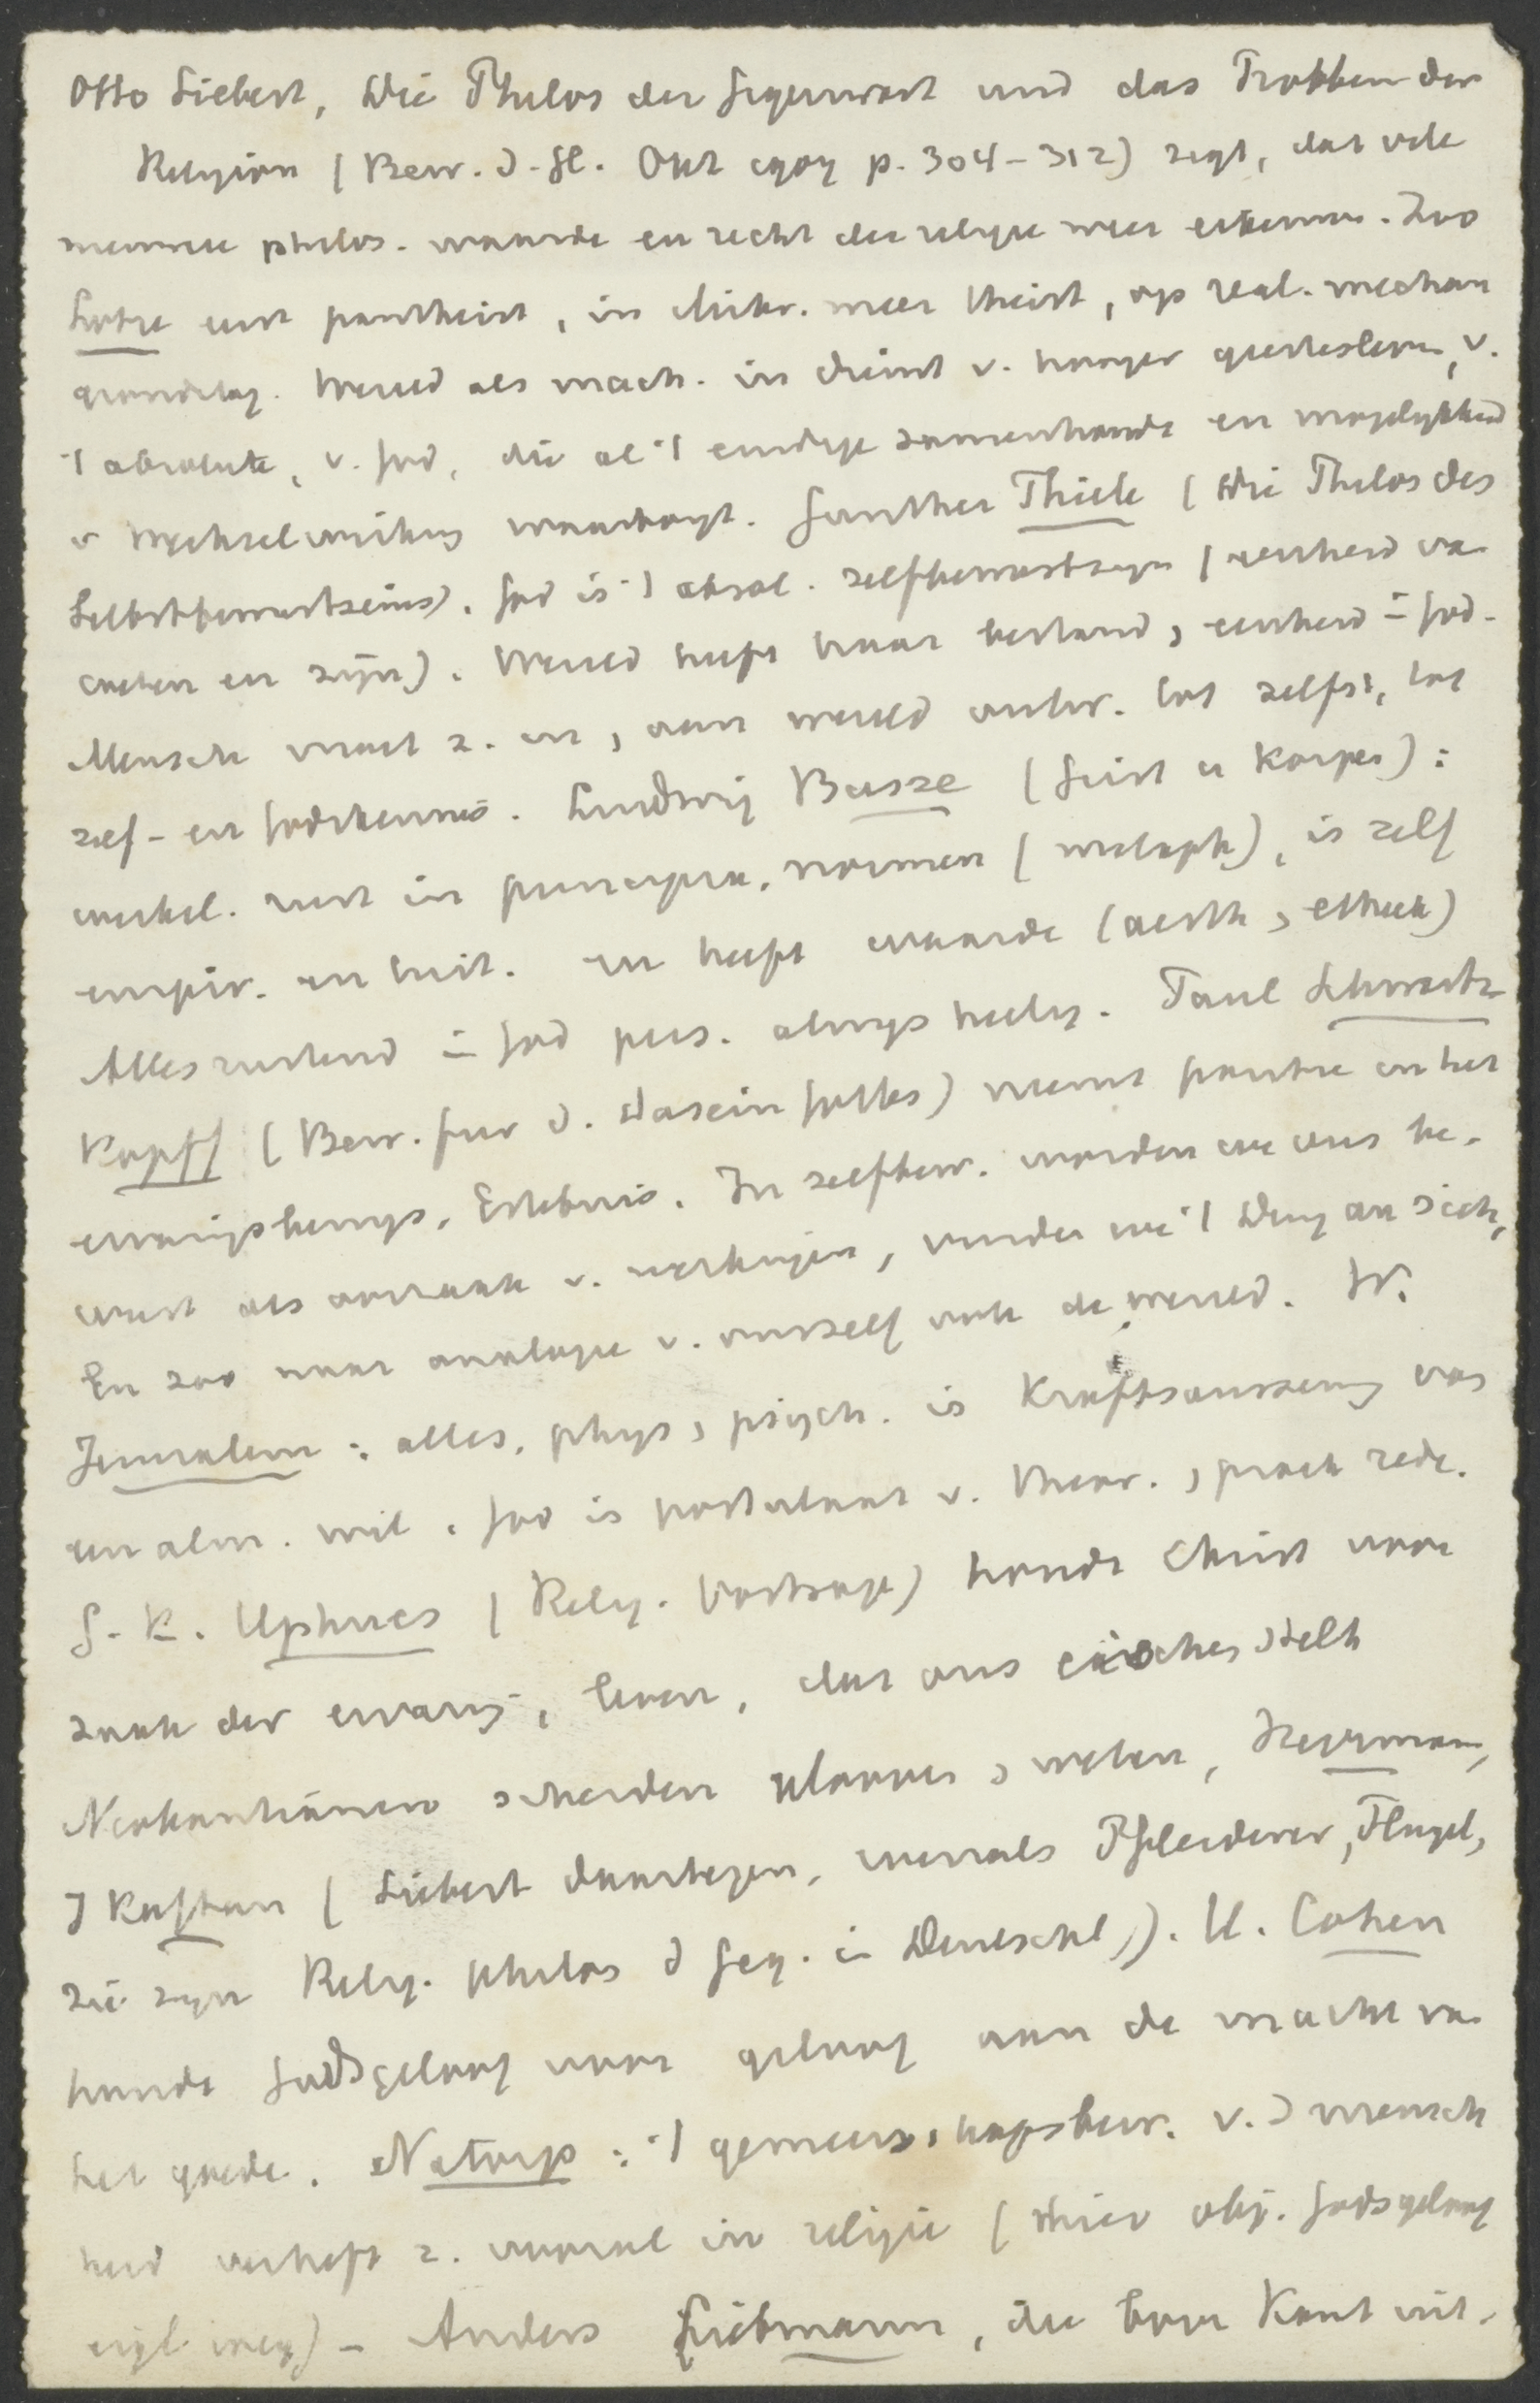 Otto Siebert, Die Philos der Gegenwart und das Problem der
Religion (Bew. d. Gl. Okt 1904 p. 304-312) zegt, dat vele
nieuwere philos. waarde en recht der religie weer erkennen. Zoo
Lotze eerst pantheist, in Mikr. meer theist, op real. mechan
grondslag. Wereld als mach. in dienst v. hooger geestesleven, v.
't absolute, v. God, die al 't eindige samenhoudt en mogelijkheid
v Wechselwirkung waarborgt. Gunther Thiele (Die Philos des
Selbstbewustseins). God is 't absol. zelfbewustzijn (eenheid va
weten en zijn). Wereld heeft haar bestand, eenheid in God.
Mensch moet z. in, aan wereld ontw. tot zelfst, tot
zelf- en Godskennis. Ludwig Busse (Geist u Körper):
werkel. rust in principien, normen (metaph), is zelf
empir. en heeft waarde (aesth, ethiek)
Alles rustend in God pers. alwys heilig. Paul Schwartz
kopff (Bew. fur d. Dasein Gottes) neemt positie in het
ervaringsbewijs, Erlebnis. In zelfbew. worden we ons be-
wust als oorzaak v. werkingen, vinden we 't Ding an sich,
En zoo naar analogie v. onszelf ook de wereld. W.
Jerusalem: alles, phys, psych. is Kraftsäusserung van
een alm. wil. God is postulaat v. theor., prakt rede.
G. K. Uphues (Relig. Vorträge) houdt Christ voor
zaak der ervaring, leven, dat ons eischen stelt
Neokantianen scheiden geloven, weten, Herrmann,
J Kaftan (Siebert daartegen, evenals Pfleiderer, Flügel,
zie zijn Relig. philos d Geg. in Deutschl). H. Cohen
houdt Godsgeloof voor geloof aan de macht va
het goede. Natorp: 't gemeenschapsbew. v. d mensch
heid verheft z. moraal in religie (hier obj. Godsgeloof
eigl weg) - Anders Liebmann, die tegen Kant uit-